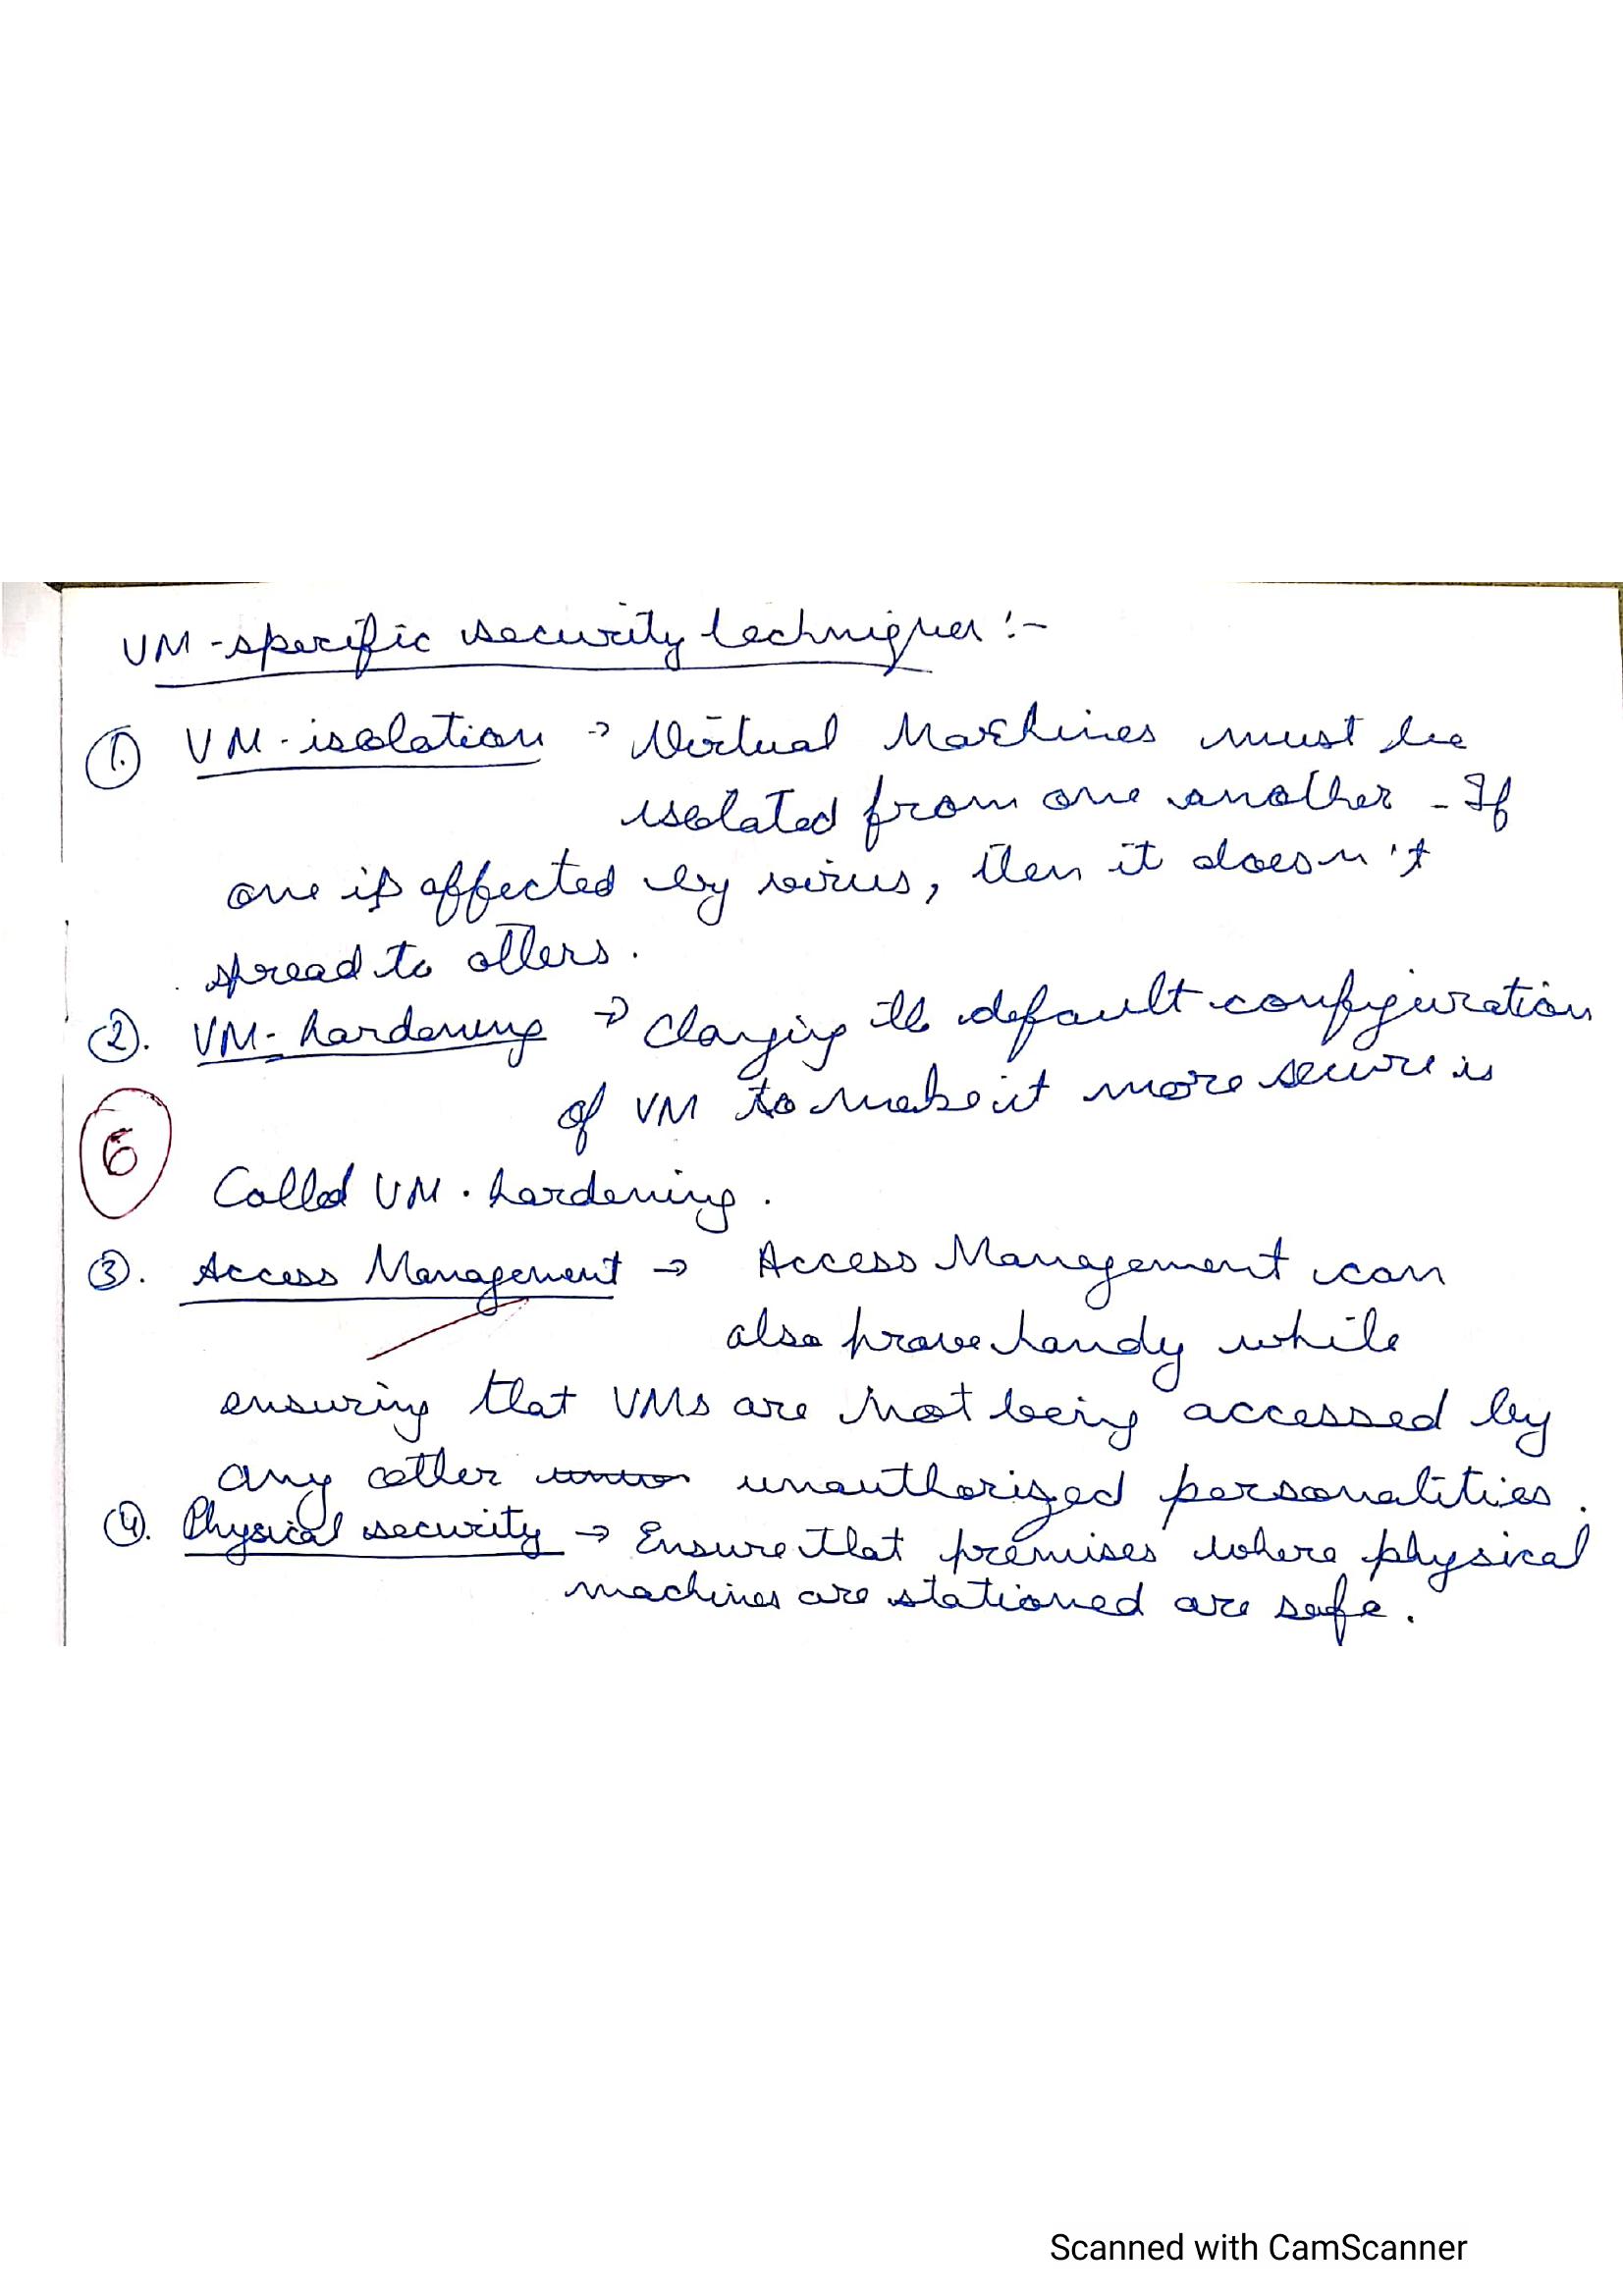 VM-specific security techniques :-
①. VM-isolation → Virtual Machines must be
isolated from one another - If
one is affected by virus, then it doesn't
spread to others.
②. VM-hardening → Changing the default configuration
of VM to make it more secure is
6
Called VM-hardening.
③. Access Management → Access Management can
also prove handy while
ensuring that VMs are not being accessed by
any other unauthorized personalities.
④. Physical security → Ensure that premises where physical
machines are stationed are safe.
Scanned with CamScanner